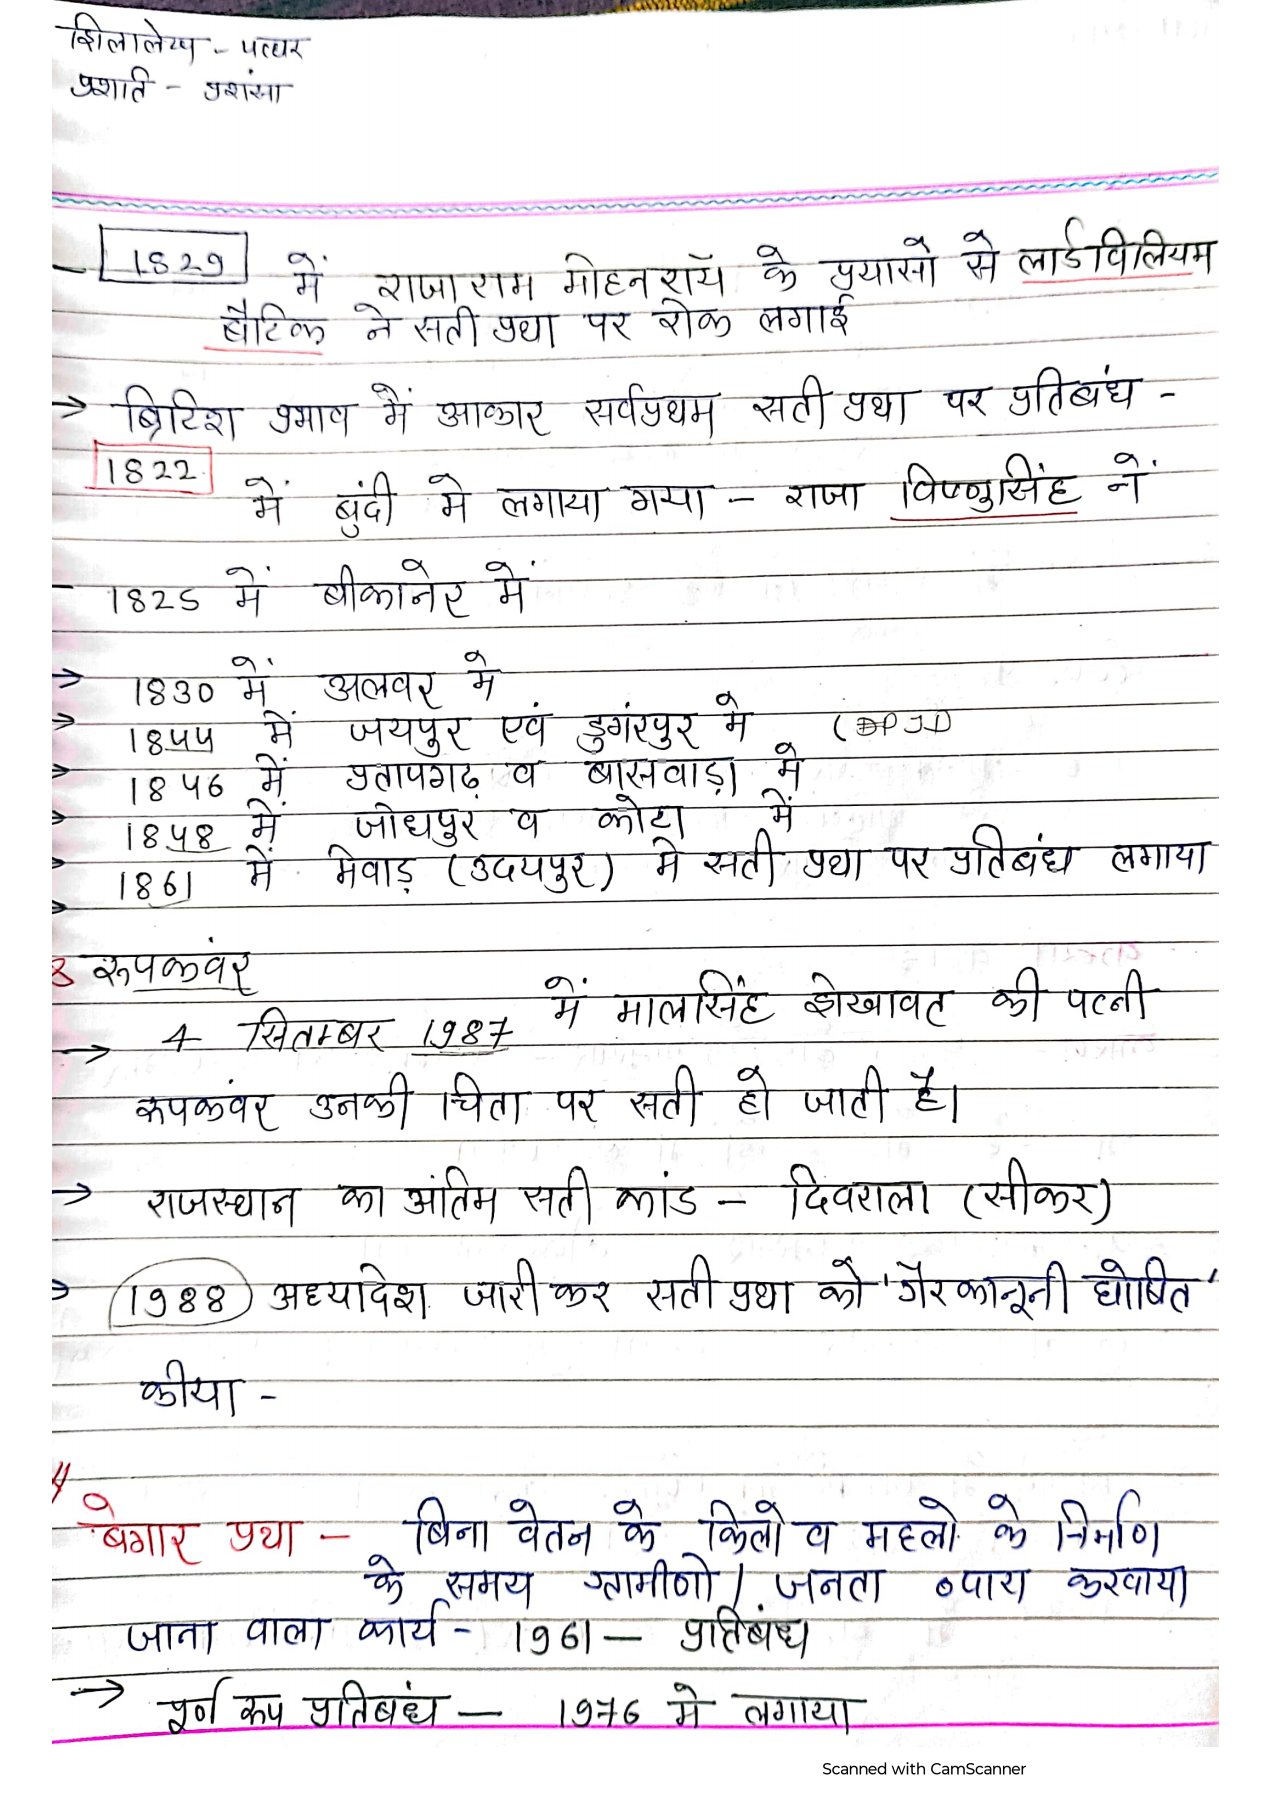 शिलालेख - पत्थर
प्रशाति - प्रशंसा
- 1829 में राजा राम मोहन रॉय के प्रयासो से लार्ड विलियम
बैटिक ने सती प्रथा पर रोक लगाई
→ ब्रिटिश प्रभाव में आकार सर्वप्रथम सती प्रथा पर प्रतिबंध -
1822 में बुंदी मे लगाया गया - राजा विष्णुसिंह नें
- 1825 में बीकानेर में
→ 1830 में अलवर मे
→ 1844 में जयपुर एवं डुगंरपुर मे
→ 1846 में प्रतापगढ़ व बासवाड़ा मे
→ 1848 में जोधपुर व कोटा में
→ 1861 में मेवाड़ (उदयपुर) मे सती प्रथा पर प्रतिबंध लगाया
3 रूपकवंर
→ 4 सितम्बर 1987 में मालसिंह शेखावट की पत्नी
रूपकंवर उनकी चिता पर सती हो जाती है।
→ राजस्थान का अंतिम सती कांड - दिवराला (सीकर)
→ 1988 अध्यादेश जारी कर सती प्रथा को 'गैर कानूनी घोषित'
कीया -
4 बेगार प्रथा - बिना वेतन के किलो व महलो के निर्माण
के समय ग्रामीणो / जनता करवाया
जाना वाला कार्य - 1961 - प्रतिबंध
→ पूर्ण रूप प्रतिबंध - 1976 मे लगाया
Scanned with CamScanner